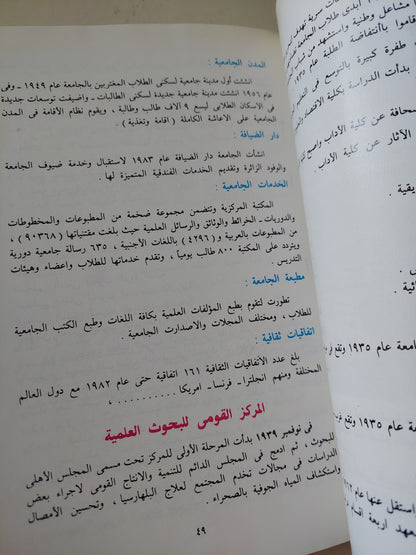 المدن الجامعية :
انشئت أول مدينة جامعية لسكنى الطلاب المغتربين بالجامعة عام ١٩٤٩ ـ وفى
عام ١٩٥٦ انشئت مدينة جامعية جديدة لسكنى الطالبات ـ واضيفت توسعات جديدة
فى الاسكان الطلابى ليسع ٩ آلاف طالب وطالبة ، ويقوم نظام الأقامة فى المدن
الجامعية على الاعاشة الكاملة ( اقامة وتغذية ) .
دار الضيافة :
انشأت الجامعة دار الضيافة عام ١٩٨٣ لاستقبال وخدمة ضيوف الجامعة
والوفود الزائرة وتقديم الخدمات الفندقية المتميزة لها .
الخدمات الجامعية :
المكتبة المركزية وتتضمن مجموعة ضخمة من المطبوعات والمخطوطات
والدوريات ـ الخرائط والوثائق والرسائل العلمية حيث بلغت مقتنياتها ( ٩٠٣٦٨ ) ،
من المطبوعات بالعربية و ( ٤٢٩٦ ) باللغات الأجنبية ، ٦٣٥ رسالة جامعية دورية
ويتردد على المكتبة ٨٠٠ طالب يومياً ، وتقدم خدماتها للطلاب واعضاء وهيئات
التدريس .
مطبعة الجامعة :
تطورت لتقوم بطبع المؤلفات العلمية بكافة اللغات وطبع الكتب الجامعية
للطلاب ، ومختلف المجلات والاصدارت الجامعية .
اتفاقيات ثقافية :
بلغ عدد الاتفاقيات الثقافية ١٦١ اتفاقية حتى عام ١٩٨٢ مع دول العالم
المختلفة ومنهم انجلترا ـ فرنسا ـ امريكا . . . . . . . . . . . ،
المركز القومى للبحوث العلمية
فى نوفمبر ١٩٣٩ بدأت المرحلة الأولى للمركز تحت مسمى المجلس الأهلى
للبحوث ، ثم ادمج فى المجلس الدائم للتنمية والانتاج القومى لاجراء بعض
الدراسات فى مجالات تخدم المجتمع لعلاج البلهارسيا ، وتحسين الأمصال
واستكشاف المياه الجوفية بالصحراء .
٤٩
مشاعل وطنية واستشهد من
قاموا بأنتفاضة الطلبة عام
طفرة كبيرة بالتوسع فى
بدأت الدراسة بكلية الاقتصاد
الصحافة عن كلية الآداب
الآثار عن كلية الآداب .
عام ١٩٣٥ وتقع
عام ١٩٣٥ وتقع
استقل عنها عام
اربعة اقسام